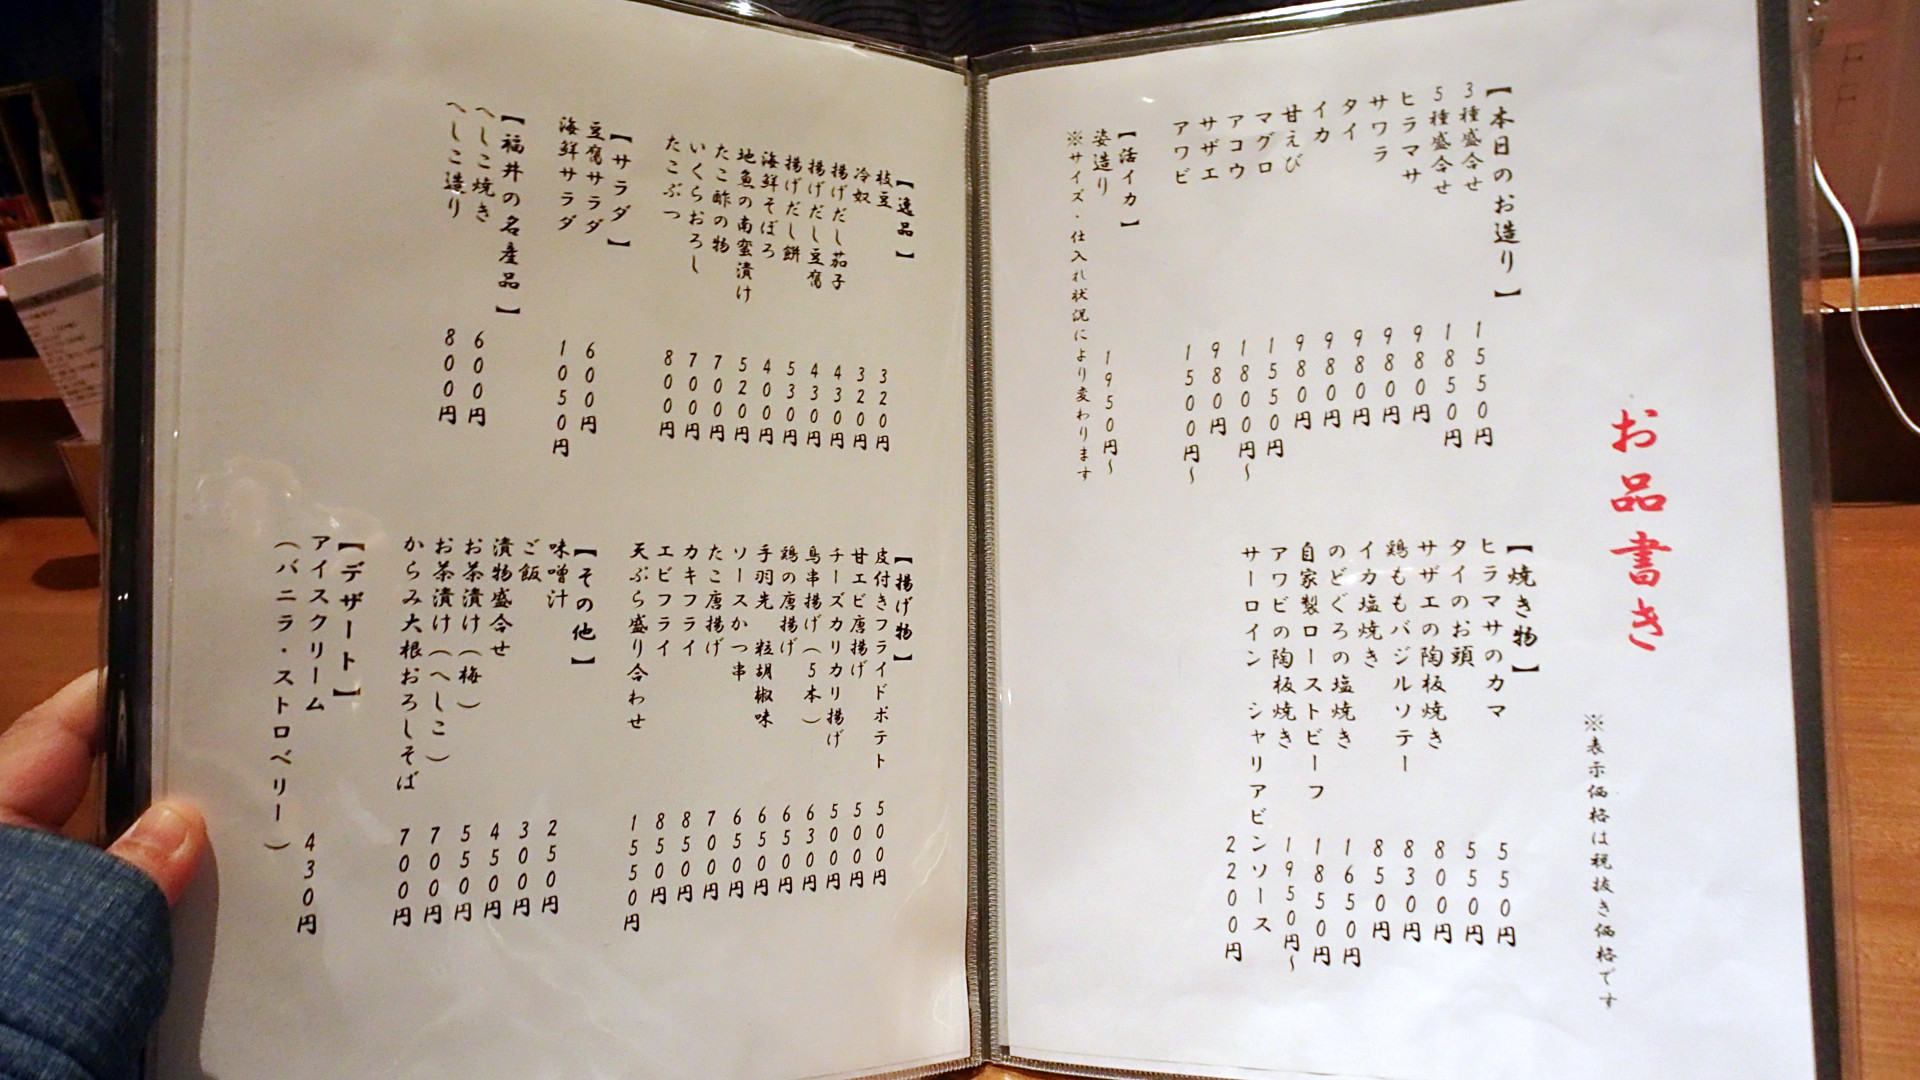 お品書き
※表示価格は税抜き価格です
【本日のお造り】
3種盛合せ 1550円
5種盛合せ 1850円
ヒラマサ 980円
サワラ 980円
タイ 980円
イカ 980円
甘えび 980円
マグロ 1550円
アコウ 1800円~
サザエ 980円
アワビ 1500円~
【活イカ】
姿造り 1950円~
※サイズ・仕入れ状況により変わります
【焼き物】
ヒラマサのカマ 550円
タイのお頭 550円
サザエの陶板焼き 800円
鶏ももバジルソテー 830円
イカ塩焼き 850円
のどぐろの塩焼き 1650円
自家製ローストビーフ 1850円
アワビの陶板焼き 1950円~
サーロイン シャリアピンソース 2200円
【逸品】
枝豆 320円
冷奴 320円
揚げだし茄子 430円
揚げだし豆腐 430円
揚げだし餅 530円
海鮮そぼろ 400円
地魚の南蛮漬け 520円
たこ酢の物 700円
いくらおろし 700円
たこぶつ 800円
【サラダ】
豆腐サラダ 600円
海鮮サラダ 1050円
【福井の名産品】
へしこ焼き 600円
へしこ造り 800円
【揚げ物】
皮付きフライドポテト 500円
甘エビ唐揚げ 500円
チーズカリカリ揚げ 500円
鳥串揚げ（5本） 630円
鶏の唐揚げ 650円
手羽先 粒胡椒味 650円
ソースかつ串 650円
たこ唐揚げ 700円
カキフライ 850円
エビフライ 850円
天ぷら盛り合わせ 1550円
【その他】
味噌汁 250円
ご飯 300円
漬物盛合せ 450円
お茶漬け（梅） 550円
お茶漬け（へしこ） 700円
からみ大根おろしそば 700円
【デザート】
アイスクリーム 430円
（バニラ・ストロベリー）